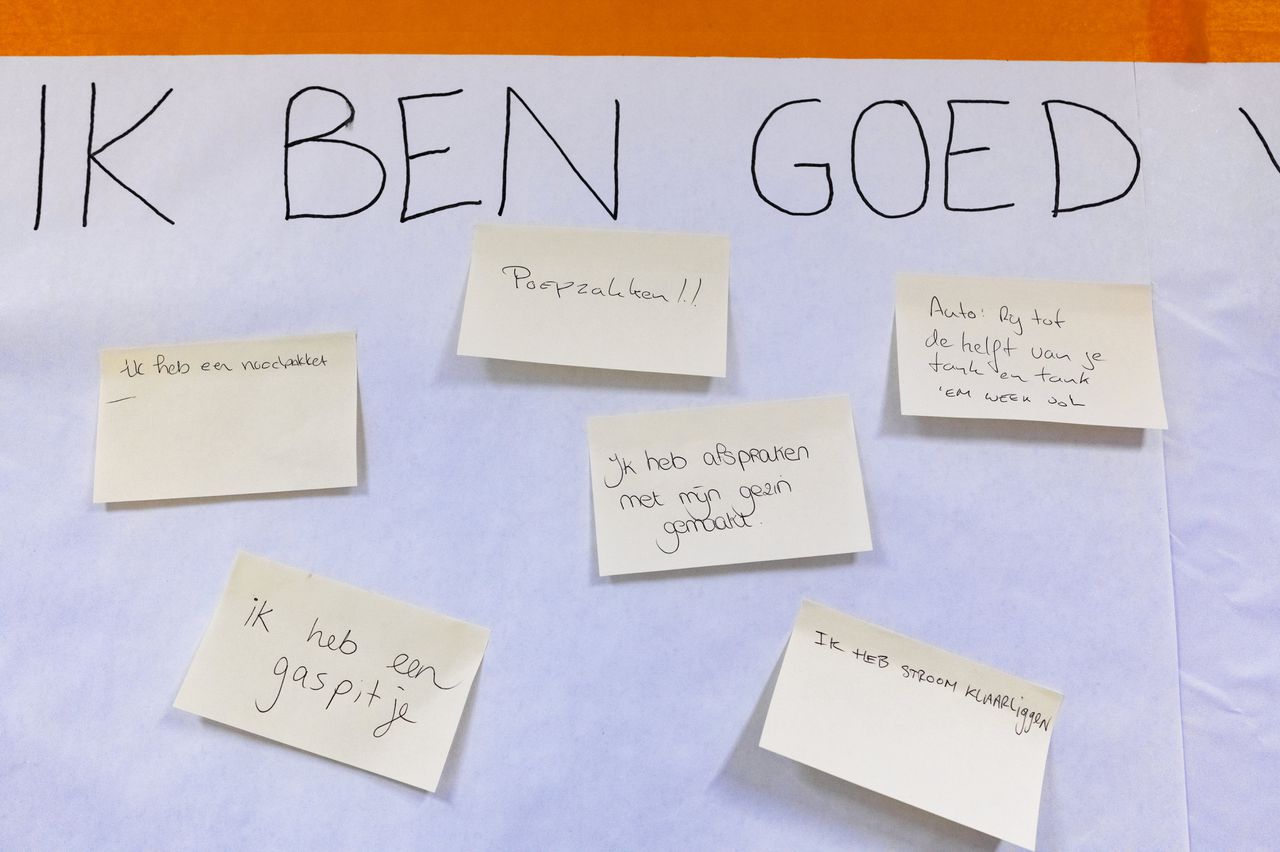 IK BEN GOED V
Poepzakken!!
Auto: Rij tot
de helft van je
tank en tank
'EM WEER VOL
Ik heb een noodpakket
—
Ik heb afspraken
met mijn gezin
gemaakt.
ik heb een
gaspitje
IK HEB STROOM KLAARliggEN